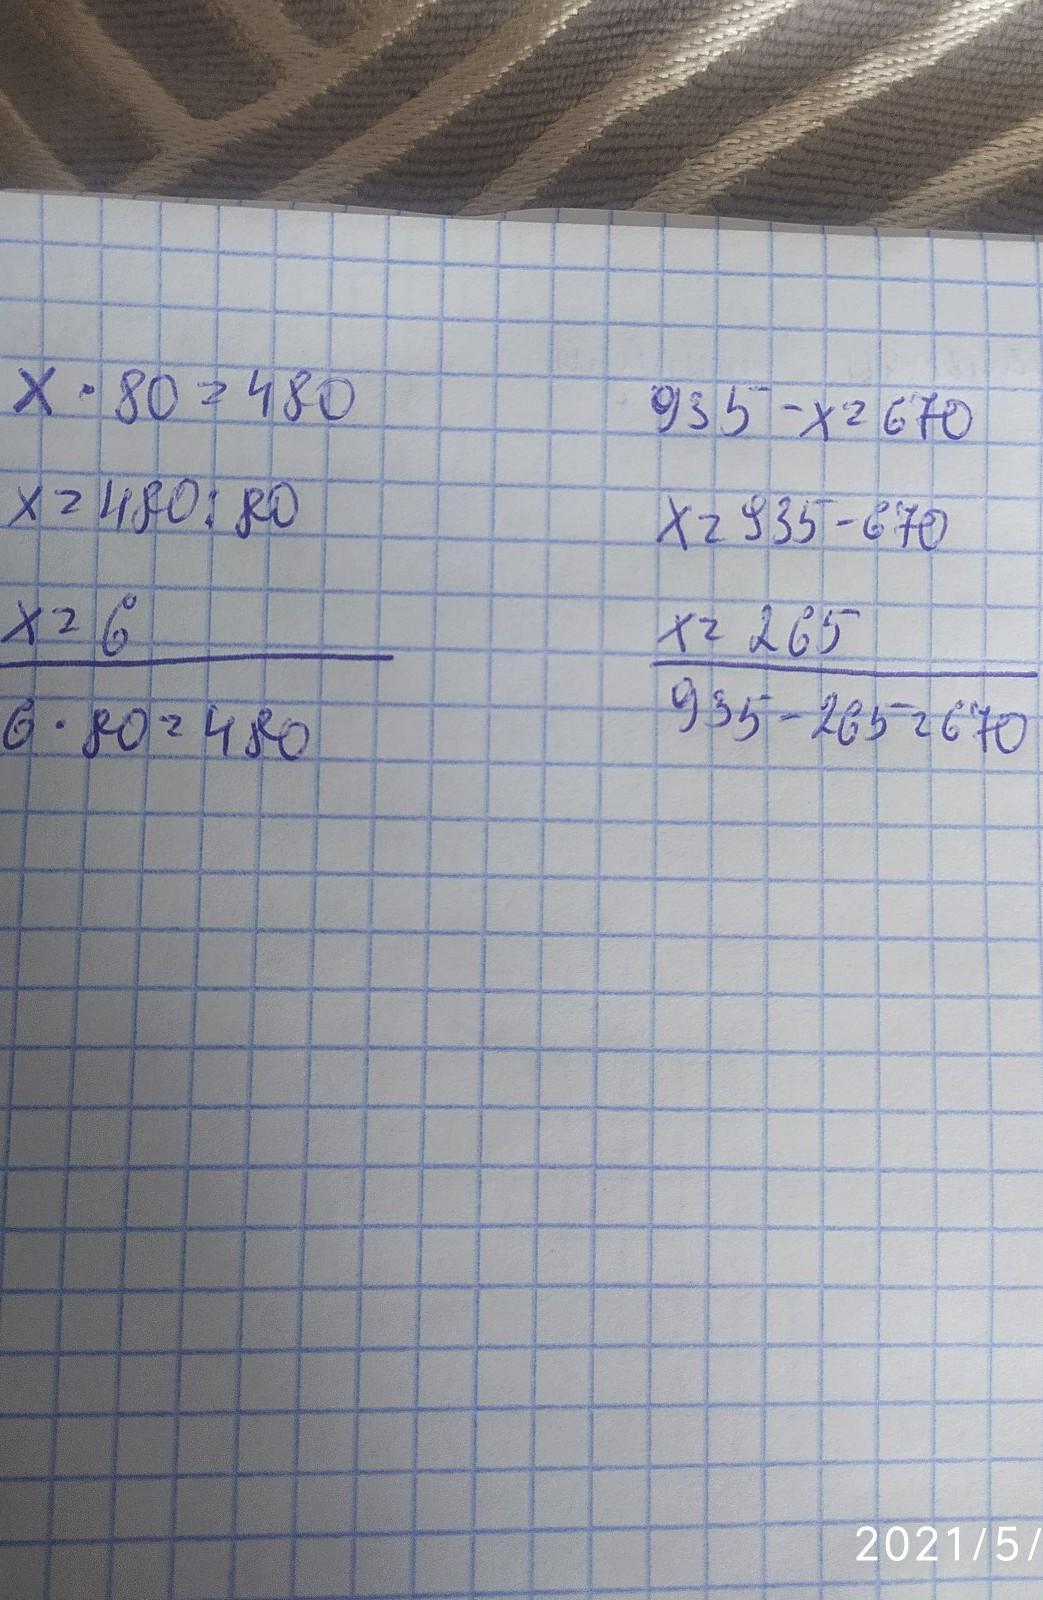 x · 80 = 480
x = 480 : 80
x = 6
6 · 80 = 480
935 - x = 670
x = 935 - 670
x = 265
935 - 265 = 670
2021/5/